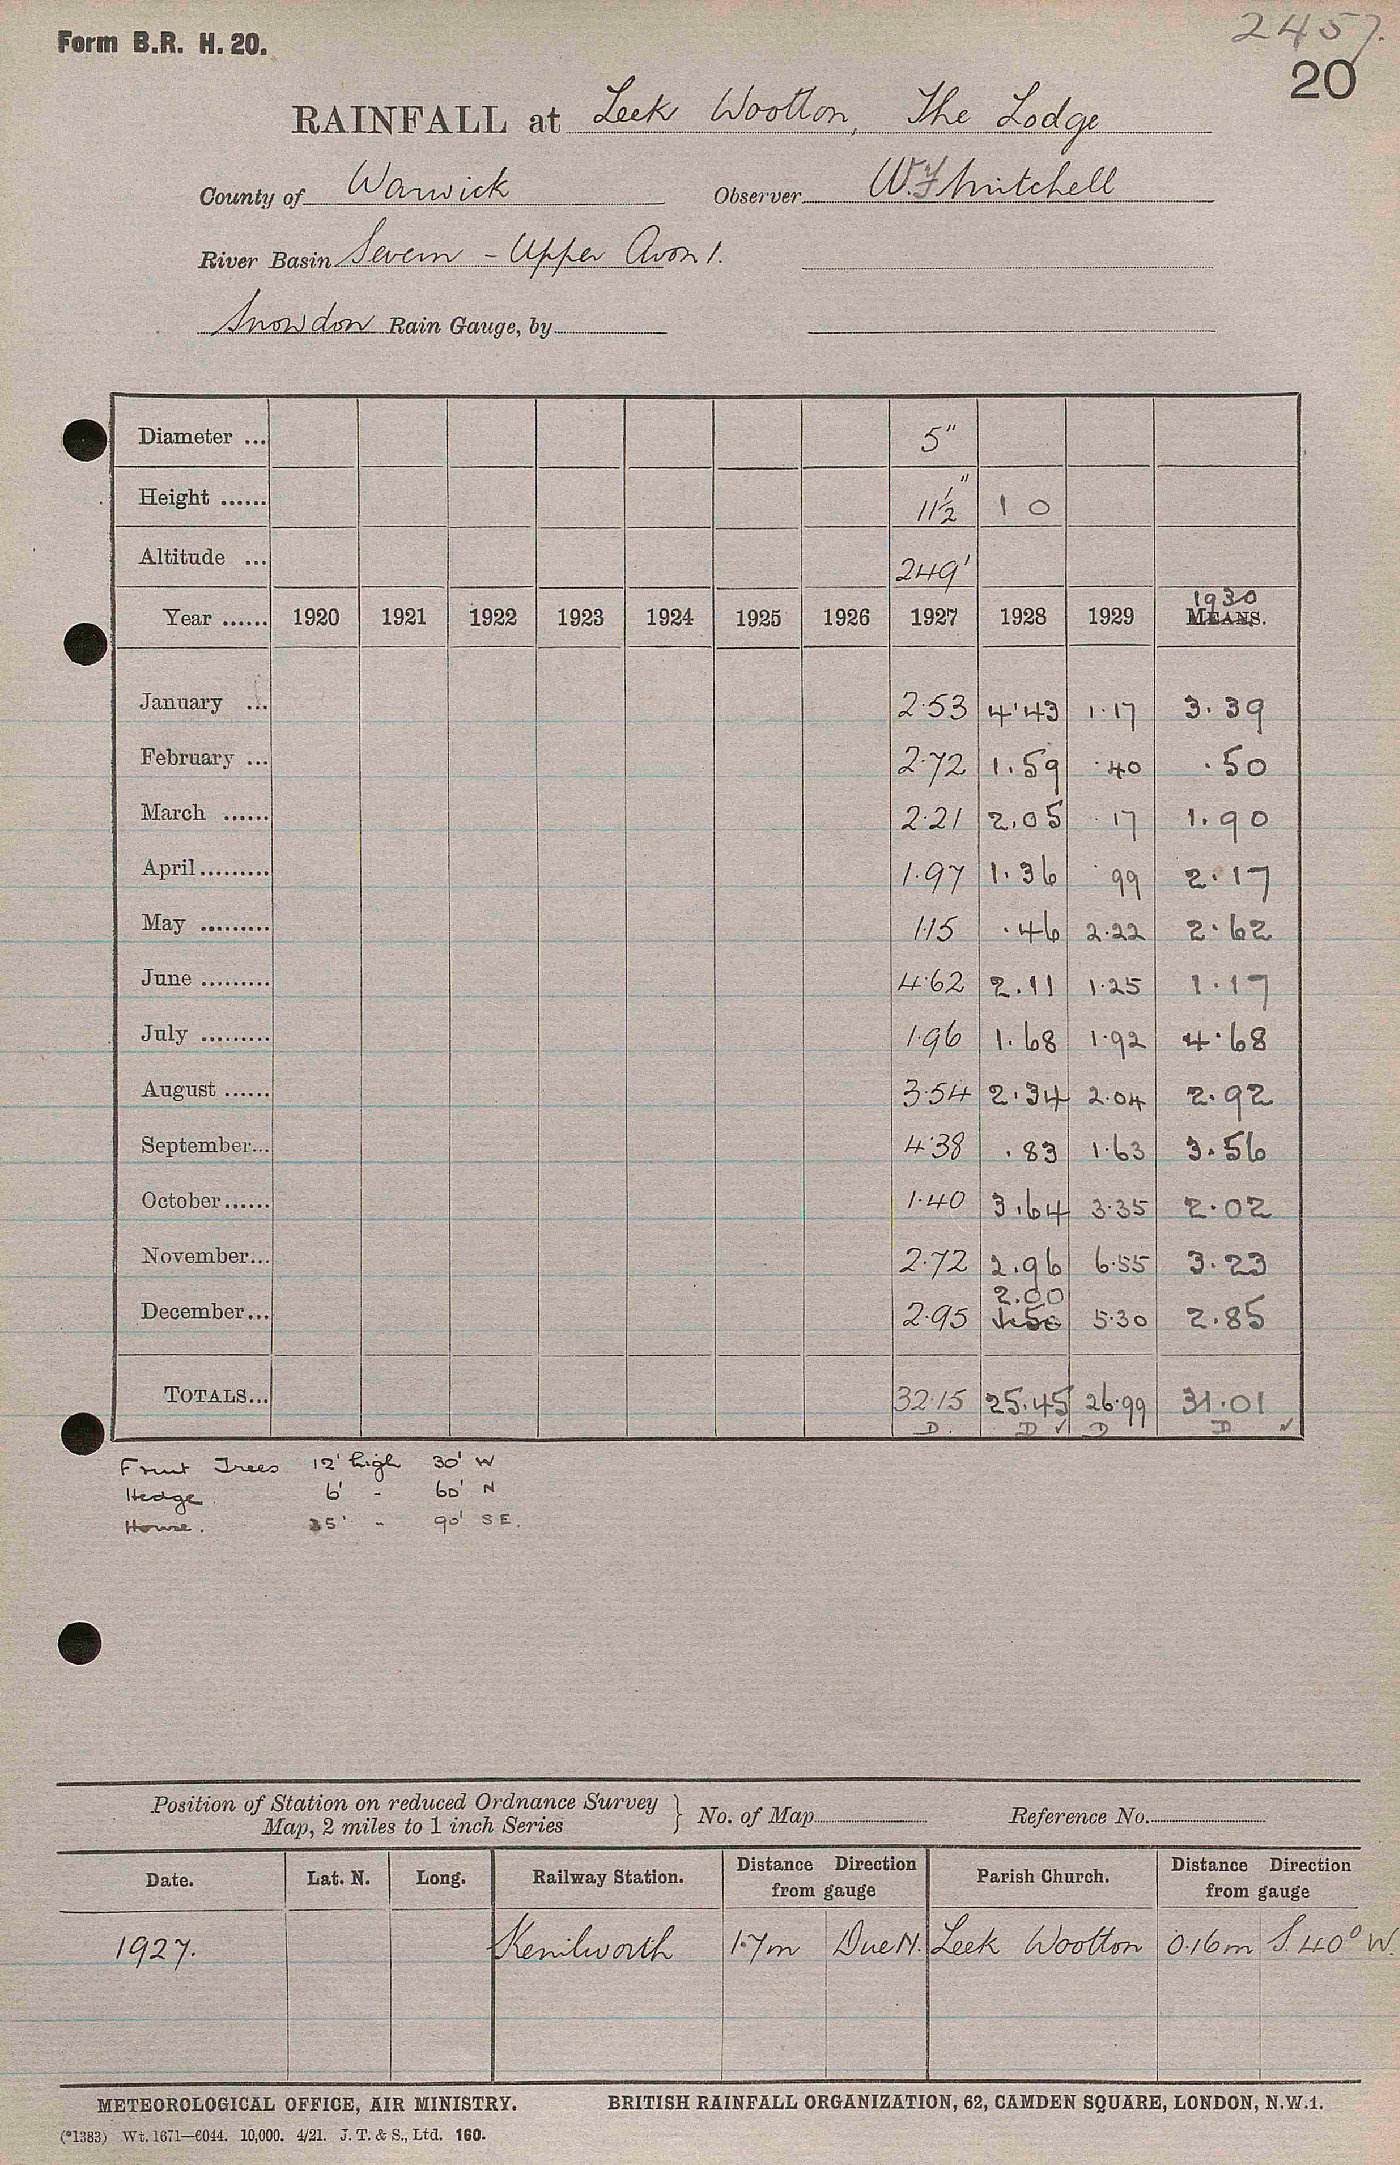 2457.
Form B.R. H. 20.
20
RAINFALL at Leek Wootton, The Lodge
County of Warwick Observer W.F Mitchell
River Basin Severn - Upper Avon 1.
Snowdon Rain Gauge, by
Diameter ... 5"
Height ...... 11½" 10
Altitude ... 249'
1930
Year ...... 1920 1921 1922 1923 1924 1925 1926 1927 1928 1929 MEANS.
January ... 2.53 4.43 1.17 3.39
February ... 2.72 1.59 .40 .50
March ...... 2.21 2.05 .17 1.90
April ......... 1.97 1.36 .99 2.17
May ......... 1.15 .46 2.22 2.62
June ......... 4.62 2.11 1.25 1.17
July ......... 1.96 1.68 1.92 4.68
August ...... 3.54 2.34 2.04 2.92
September... 4.38 .83 1.63 3.56
October ...... 1.40 3.64 3.35 2.02
November... 2.72 2.96 6.55 3.23
2.00
December... 2.95 1.50 5.30 2.85
TOTALS... 32.15 25.45 26.99 31.01
D D ✓ D D ✓
Fruit Trees 12' high 30' W
Hedge 6' " 60' N
House. 35' " 90' SE.
Position of Station on reduced Ordnance Survey
Map, 2 miles to 1 inch Series } No. of Map Reference No.
Date. Lat. N. Long. Railway Station. Distance Direction from gauge Parish Church. Distance Direction from gauge
1927. Kenilworth 1.7m Due N. Leek Wootton 0.16m S. 40° W.
METEOROLOGICAL OFFICE, AIR MINISTRY. BRITISH RAINFALL ORGANIZATION, 62, CAMDEN SQUARE, LONDON, N.W.1.
(*1383) Wt. 1671—6044. 10,000. 4/21. J. T. & S., Ltd. 160.